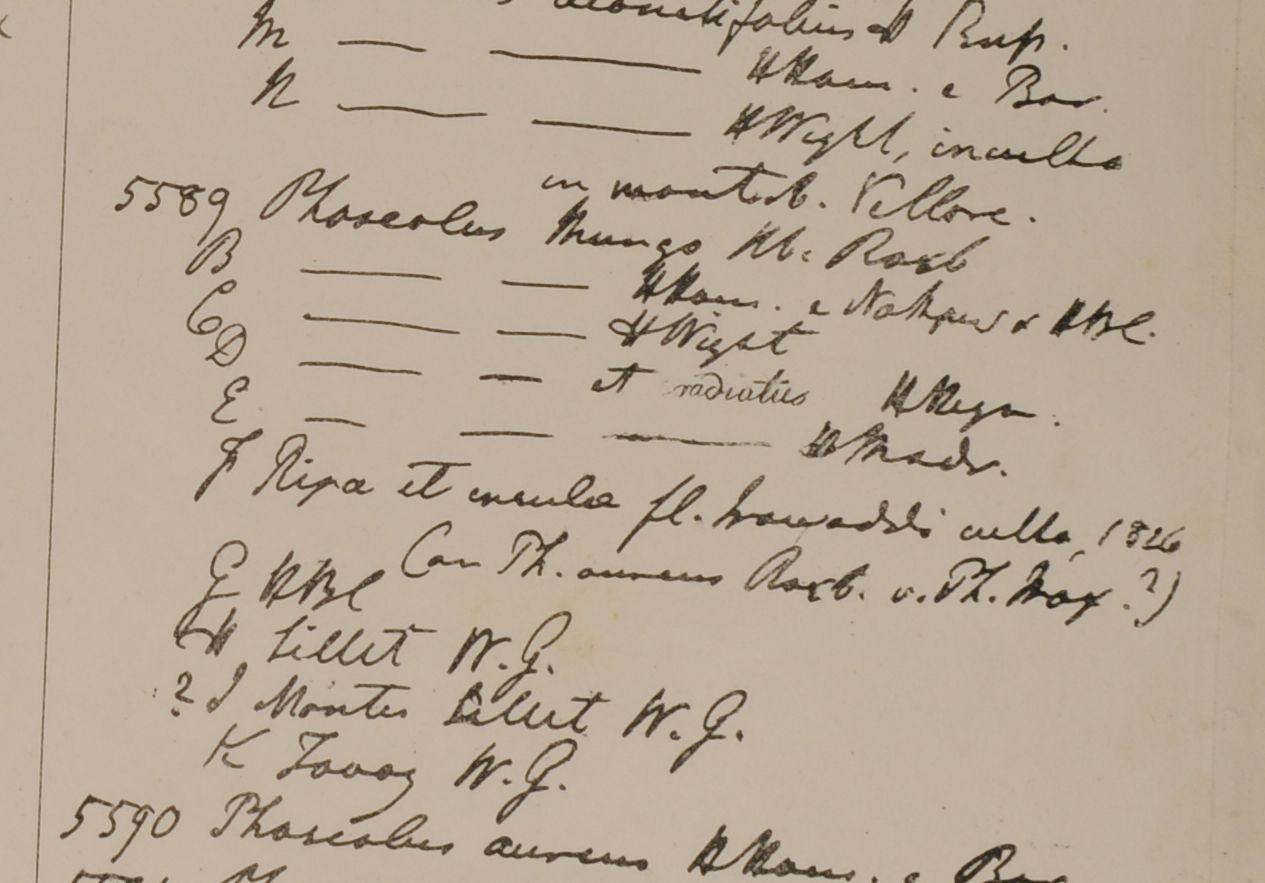 aconitifolius H Rup.
M — — HHam. e Bar.
N — — HWight, inculta
in montib. Vellore.
5589 Phaseolus Mungo Hb. Roxb
B — — HHam. e Nathpur & HBC.
C — — HWight
D — — et radiatus HHeyn.
E — — — HMadr.
F Ripa et insula fl. Irawaddi culta, 1826
(an Ph. aureus Roxb. v. Ph. Max.?)
G HBC
H Sillet W.G.
? I Montes Sillet W.G.
K Tavoy W.G.
5590 Phaseolus aureus HHam. e